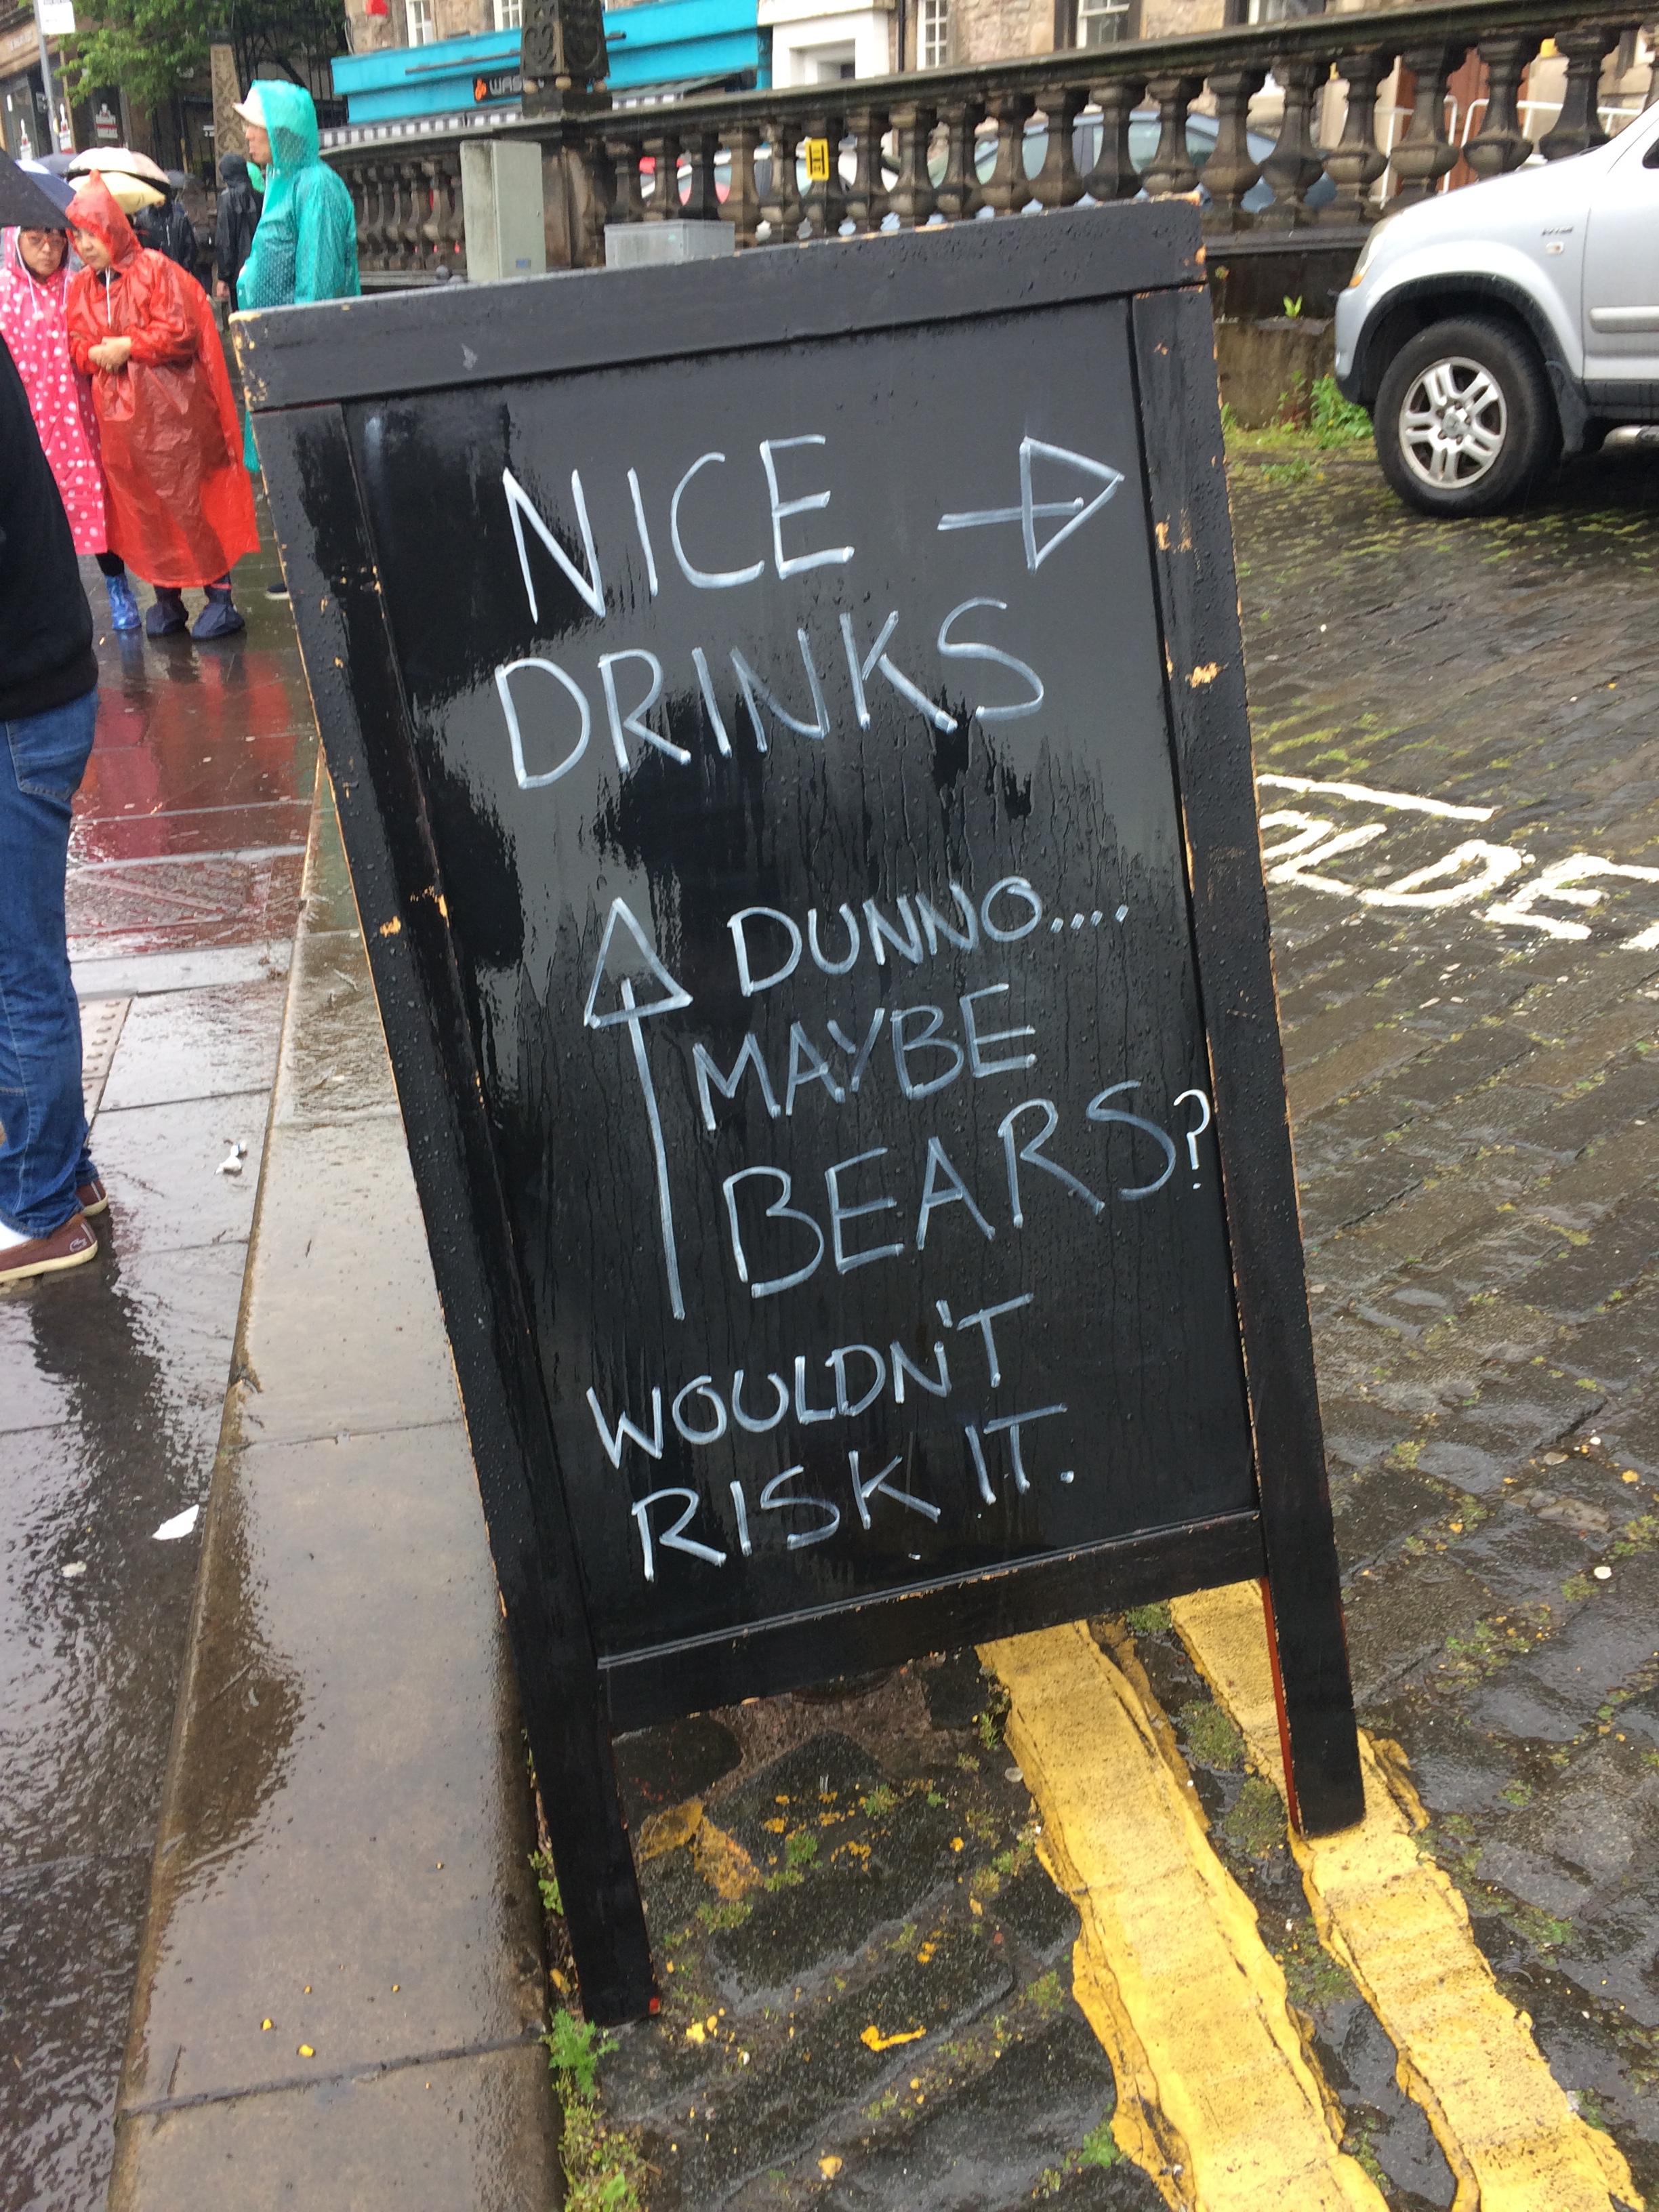 NICE
DRINKS
DUNNO....
MAYBE
BEARS?
WOULDN'T
RISK IT.